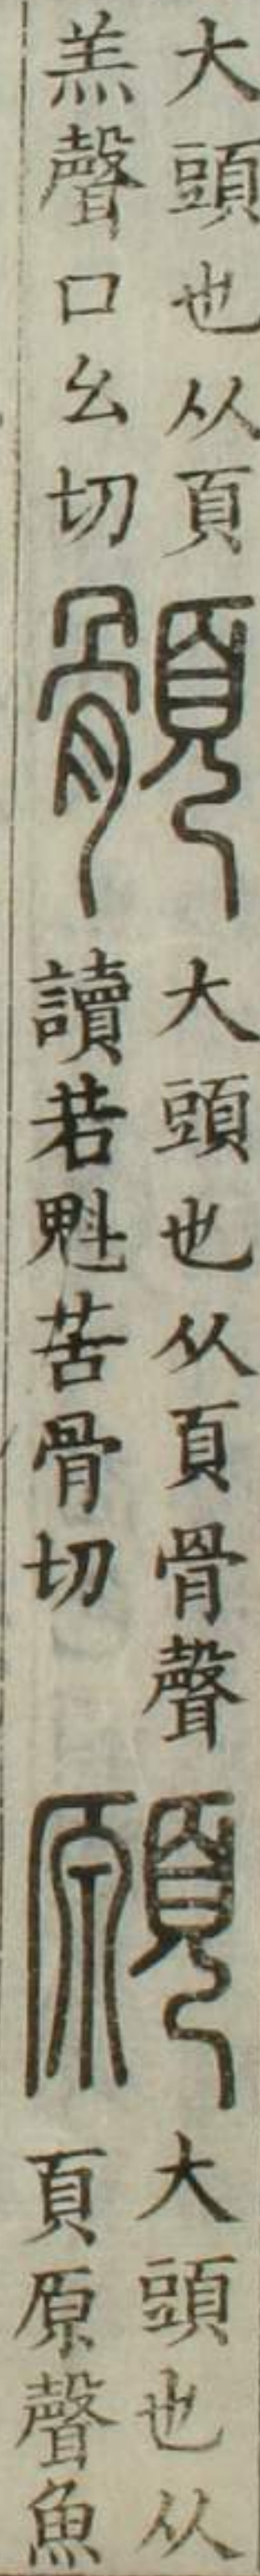 大頭也从頁
羔聲口幺切
顝
大頭也从頁骨聲
讀若魁苦骨切
願
大頭也从
頁原聲魚